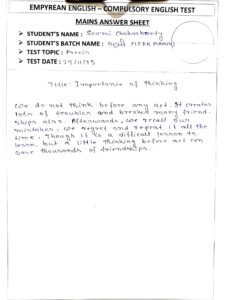 EMPYREAN ENGLISH – COMPULSORY ENGLISH TEST
MAINS ANSWER SHEET
➤ STUDENT'S NAME : Soumi Chakraborty
➤ STUDENT'S BATCH NAME :
➤ TEST TOPIC : Precis
➤ TEST DATE : 29/11/25
Title: Importance of thinking
We do not think before any act. It creates
lots of troubles and breaked many friend-
ships also. Afterwards, we recall our
mistakes, we regret and repeat it all the
time. Though it is a difficult lesson to
learn, but a little thinking before act can
save thousands of friendships.